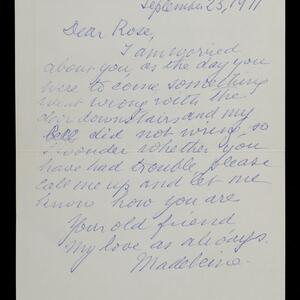 September 25, 1971
Dear Rose,
I am worried
about you, as the day you
were to come something
went wrong with the
door downstairs and my
bell did not wring, so
I wonder whether you
have had trouble please
call me up and let me
know how you are
Your old friend
My love as always.
Madeleine.